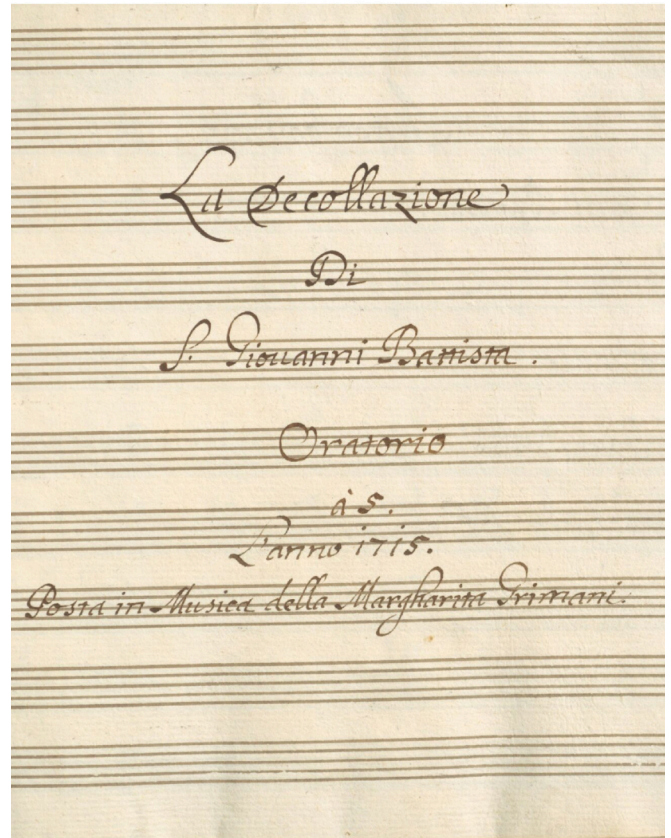 La Decollazione
Di
S. Giouanni Battista.
Oratorio
à 5.
L'anno 1715.
Posta in Musica della Margharita Grimani.